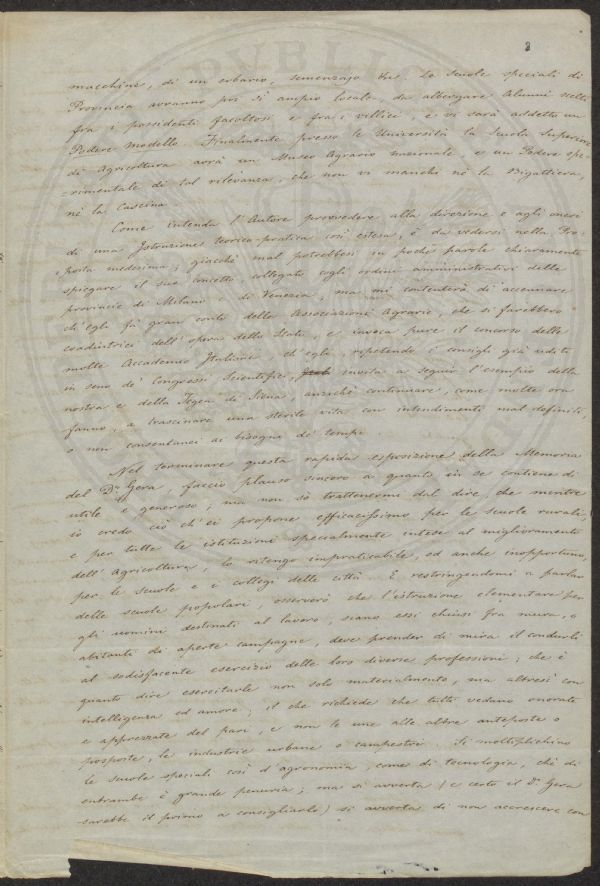 3
macchine, di un erbario, semenzajo &c. Le Scuole speciali di
Provincia avranno poi sì ampio locale da albergare Alunni scelti
fra i possidenti facoltosi, e fra i villici, e vi sarà addetto un
Podere modello. Finalmente presso le Università la Scuola Superiore
di Agricoltura avrà un Museo Agrario nazionale, e un Podere spe-
=rimentale di tal rilevanza, che non vi manchi nè la Bigattiera,
nè la Cascina.
Come intenda l'Autore provvedere alla direzione e agli oneri
di una Istruzione teorico-pratica così estesa, è da vedersi nella Pro-
posta medesima; giacchè mal potrebbesi in poche parole chiaramente
spiegare il suo concetto, collegato cogli ordini amministrativi delle
provincie di Milano e di Venezia, ma mi contenterò di accennare
ch'egli fà gran conto delle Associazioni Agrarie, che si farebbero
coadiutrici dell'opera dello Stato, e invoca pure il concorso delle
molte Accademie Italiane, ch'egli, ripetendo i consigli già uditi
in seno de' Congressi Scientifici, invita a seguir l'esempio della
nostra e della Tegea di Siena, anzichè continuare, come molte ora
fanno, a trascinare una sterile vita con intendimenti mal definiti,
o non consentanei ai bisogni de' tempi.
Nel terminare questa rapida esposizione della Memoria
del Dr. Gera, faccio plauso sincero a quanto in se contiene di
utile e generoso; ma non sò trattenermi dal dire, che mentre
io credo ciò ch'ei propone efficacissimo per le scuole rurali,
e per tutte le istituzioni specialmente intese al miglioramento
dell'Agricoltura, lo ritengo impraticabile, ed anche inopportuno,
per le Scuole e i collegi delle città. E restringendomi a parlar
delle scuole popolari, osserverò che l'istruzione elementare per
gli uomini destinati al lavoro, siano essi chiusi fra mura, o
abitanti di aperte campagne, deve prender di mira il condurli
al sodisfacente esercizio delle loro diverse professioni; che è
quanto dire esercitarle non solo materialmente, ma altresì con
intelligenza ed amore; il che richiede che tutti vedano onorate
e apprezzate del pari, e non le une alle altre anteposte o
posposte, le industrie urbane o campestri. Si moltiplichino
le scuole speciali così d'agronomia, come di tecnologia, chè di
entrambe è grande penuria; ma si avverta (e certo il Dr. Gera
sarebbe il primo a consigliarlo) si avverta di non accrescere con